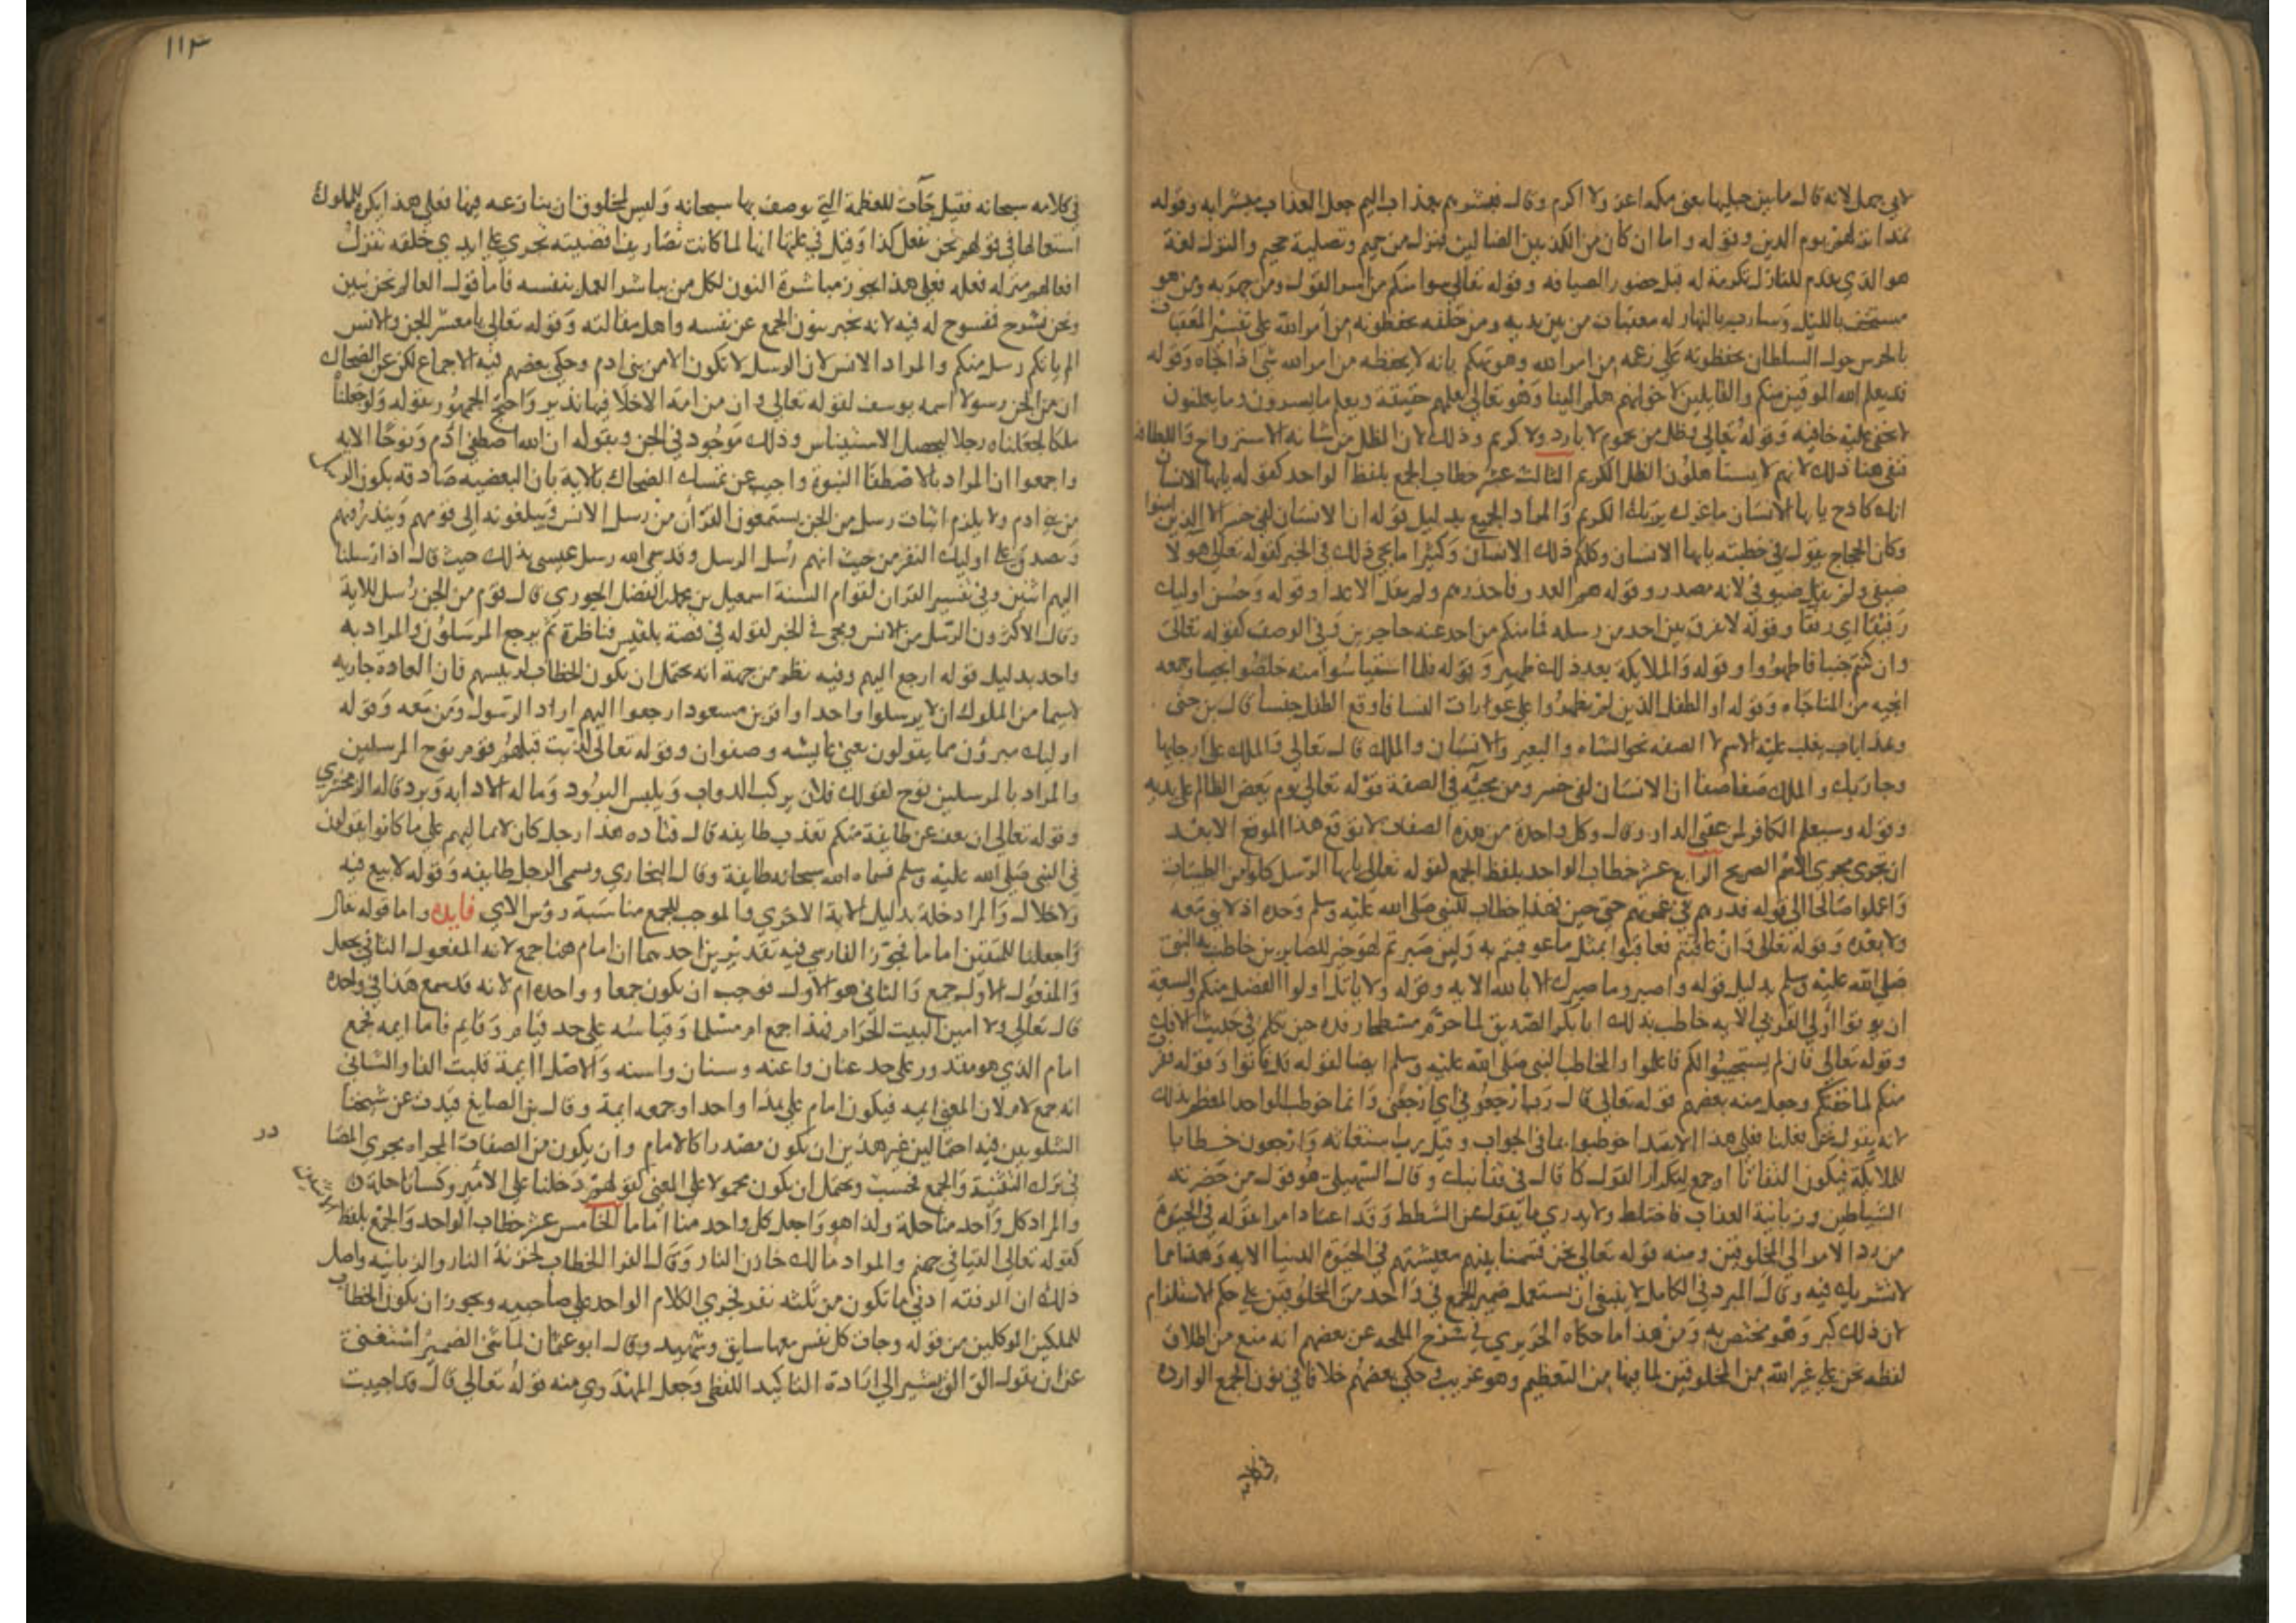 لابي جهل لانه قال ما بين جبليها يعني مكه اعز ولا اكرم وقال فبشرهم بعذاب اليم جعل العذاب مبشرا به وقوله
هذا نزلهم يوم الدين وقوله واما ان كان من المكذبين الضالين فنزل من حميم وتصلية جحيم والنزل لغة
هو الذي يقدم للنازل تكرمة له قبل حضور الضيافه وقوله تعالى سوا منكم من اسر القول ومن جهر به ومن هو
مستخف بالليل وسارب بالنهار له معقبات من بين يديه ومن خلفه يحفظونه من امر الله على تفسير المعقبات
بالحرس حول السلطان يحفظونه على زعمه من امر الله وهو تهكم بانه لا يحفظه من امر الله شي اذا جاه وقوله
قد يعلم الله المعوقين منكم والقايلين لاخوانهم هلم الينا وهو تعالى يعلمهم حقيقة ويعلم ما يسرون وما يعلنون
لا يخفى عليه خافيه وقوله تعالى وظل من يحموم لا بارد ولا كريم وذلك لان الظل من شانه الاسترواح واللطافة
فنفى هنا ذلك لانهم لا يستاهلون الظل الكريم الثالث عشر خطاب الجمع بلفظ الواحد كقوله يايها الانسان
انك كادح يايها الانسان ما غرك بربك الكريم والمراد الجميع بدليل قوله ان الانسان لفي خسر الا الذين امنوا
وكان الحجاج يقول في خطبته يايها الانسان وكلكم ذلك الانسان وكثيرا ما يجي ذلك في الخبر كقوله تعالى هولا
ضيفي ولم يقل ضيوفي لانه مصدر وقوله هم العدو فاحذرهم ولم يقل الاعدا وقوله وحسن اوليك
رفيقا اي رفقا وقوله لا نفرق بين احد من رسله فما منكم من احد عنه حاجزين وفي الوصف كقوله تعالى
وان كنتم جنبا فاطهروا وقوله والملايكة بعد ذلك ظهير وقوله فلما استياسوا منه خلصوا نجيا وجمعه
انجيه من المناجاه وقوله او الطفل الذين لم يظهروا على عورات النسا فاوقع الطفل جنسا قال بن جني
وهذا باب يغلب عليه الاسم لا الصفه نحو الشاه والبعير والانسان والملك قال تعالى والملك على ارجايها
وجا ربك والملك صفا صفا ان الانسان لفي خسر ومن مجيه في الصفة قوله تعالى يوم يعض الظالم على يديه
وقوله وسيعلم الكافر لمن عقبى الدار وقال وكل واحدة من هذه الصفات لا توقع هذا الموقع الا بعد
ان تجري مجرى الاسم الصريح الرابع عشر خطاب الواحد بلفظ الجمع لقوله تعالى يايها الرسل كلوا من الطيبات
واعملوا صالحا الى قوله فذرهم في غمرتهم حتى حين فهذا خطاب للنبي صلى الله عليه وسلم وحده اذ لا نبي معه
ولا بعده وقوله تعالى وان عاقبتم فعاقبوا بمثل ما عوقبتم به ولين صبرتم لهو خير للصابرين خاطب به النبي
صلى الله عليه وسلم بدليل قوله واصبر وما صبرك الا بالله الايه وقوله ولا ياتل اولوا الفضل منكم والسعة
ان يوتوا اولي القربى الايه خاطب بذلك ابا بكر الصديق لما حرم مسطحا رفده حين تكلم في حديث الافك
وقوله تعالى فان لم يستجيبوا لكم فاعلموا والمخاطب النبي صلى الله عليه وسلم ايضا لقوله قل فاتوا وقوله ففررت
منكم لما خفتكم وجعل منه بعضهم قوله تعالى قال رب ارجعوني اي ارجعني وانما خوطب الواحد المعظم بذلك
لانه يقول نحن فعلنا فعلى هذا الابتدا خوطبوا بما في الجواب وقيل رب استغاثه وارجعون خطابا
للملايكة فيكون التفاتا او جمع لتكرار القول كما قال قفا نبك وقال السهيلي هو قول من حضرته
الشياطين وزبانية العذاب فاختلط ولا يدري ما يقول من الشطط وقد اعتاد امرا يقوله في الحيوة
من رد الامر الى المخلوقين ومنه قوله تعالى نحن قسمنا بينهم معيشتهم في الحيوة الدنيا الايه وهذا مما
لا تشريك فيه وقال المبرد في الكامل لا ينبغي ان يستعمل ضمير الجمع في واحد من المخلوقين على حكم الاستلزام
لان ذلك كبر وهو مختص به ومن هذا ما حكاه الحريري في شرح الملحه عن بعضهم انه منع من اطلاق
لفظه نحن على غير الله من المخلوقين لما فيها من التعظيم وهو غريب وحكى بعضهم خلافا في نون الجمع الوارده
في كلامه
١١٣
في كلامه سبحانه فقيل جآت للعظمة التي يوصف بها سبحانه وليس لمخلوق ان ينازعه فيها فعلى هذا يكره للملوك
استعمالها في قولهم نحن نفعل كذا وقيل في علتها انها لما كانت تصاريف اقضيته تجري على ايدي خلقه تنزل
افعالهم منزله فعله فعلى هذا يجوز مباشرة النون لكل من يباشر العمل بنفسه فاما قول العالم نحن نبين
ونحن نشرح فمفسوح له فيه لانه يخبر بنون الجمع عن نفسه واهل مقالته وقوله تعالى يا معشر الجن والانس
الم ياتكم رسل منكم والمراد الانس لان الرسل لا تكون الا من بني ادم وحكى بعضهم فيه الاجماع لكن عن الضحاك
ان من الجن رسولا اسمه يوسف لقوله تعالى وان من امة الا خلا فيها نذير واحتج الجمهور بقوله ولو جعلناه
ملكا لجعلناه رجلا ليحصل الاستيناس وذلك موجود في الجن وبقوله ان الله اصطفى ادم ونوحا الايه
واجمعوا ان المراد بالاصطفا النبوة واجيب عن تمسك الضحاك بالاية بان البعضيه صادقه بكون الرسل
من بني ادم ولا يلزم اثبات رسل من الجن يستمعون القرآن من رسل الانس فيبلغونه الى قومهم وينذرونهم
وصدق على اوليك النفر من حيث انهم رسل الرسل وقد سمى الله رسل عيسى بذلك حيث قال اذ ارسلنا
اليهم اثنين وفي تفسير القران لقوام السنة اسمعيل بن محمد بن الفضل الجوزي قال قوم من الجن رسل للاية
وقال الاكثرون الرسل من الانس ويجي في الخبر لقوله في قصة بلقيس فناظرة بم يرجع المرسلون والمراد به
واحد بدليل قوله ارجع اليهم وفيه نظر من جهة انه يحتمل ان يكون الخطاب لرييسهم فان العادة جاريه
لاسيما من الملوك ان لا يرسلوا واحدا وقرا بن مسعود ارجعوا اليهم اراد الرسول ومن معه وقوله
اوليك مبرؤن مما يقولون يعني عايشه وصفوان وقوله تعالى كذبت قبلهم قوم نوح المرسلين
والمراد بالمرسلين نوح لقولك فلان يركب الدواب ويلبس البرود وماله الا دابه وبرد قاله الزمخشري
وقوله تعالى ان يعف عن طايفة منكم نعذب طايفه قال قتاده هذا رجل كان لا يماليهم على ما كانوا يقولون
في النبي صلى الله عليه وسلم فسماه الله سبحانه طايفة وقال البخاري ويسمى الرجل طايفه وقوله لا بيع فيه
ولا خلال والمراد خلة بدليل الاية الاخرى والموجب للجمع مناسبة رؤس الاي فايده واما قوله تعالى
واجعلنا للمتقين اماما فجوز الفارسي فيه تقديرين احدهما ان امام هنا جمع لانه المفعول الثاني لجعل
والمفعول الاول جمع والثاني هو الاول فوجب ان يكون جمعا وواحده ام لانه قد سمع هذا في واحده
قال تعالى ولا امين البيت الحرام فهذا جمع ام مسلما وقياسه على حد قيام وقايم فاما ايمه فجمع
امام الذي هو مقدور على حد عنان واعنه وسنان واسنه والاصل اامة فقلبت الفا والثاني
انه جمع لام لان المعنى ايمه فيكون امام على هذا واحدا وجمعه ايمة وقال بن الصايغ قيدت عن شيخنا
الشلوبين فيه احتمالين غير هذين ان يكون مصدرا كالامام وان يكون من الصفات المجراه مجرى المصا
در
في ترك التثنية والجمع كحسب ويحتمل ان يكون محمولا على المعنى كقولهم دخلنا على الامير وكسانا حلة
والمراد كل واحد منا حلة ولذا هو واجعل كل واحد منا اماما الخامس عشر خطاب الواحد والجمع بلفظ
الاثنين
كقوله تعالى القيا في جهنم والمراد مالك خازن النار وقال الفرا الخطاب لخزنة النار والزبانيه واصل
ذلك ان الرفقه ادنى ما تكون من ثلثه نفر فجرى الكلام الواحد على صاحبيه ويجوز ان يكون الخطاب
للملكين الموكلين من قوله وجات كل نفس معها سايق وشهيد وقال ابو عثمان لما ثنى الضمير استغنى
عن ان يقول الق الق يشير الى ارادة التاكيد اللفظي وجعل المهدوي منه قوله تعالى قال قد اجيبت